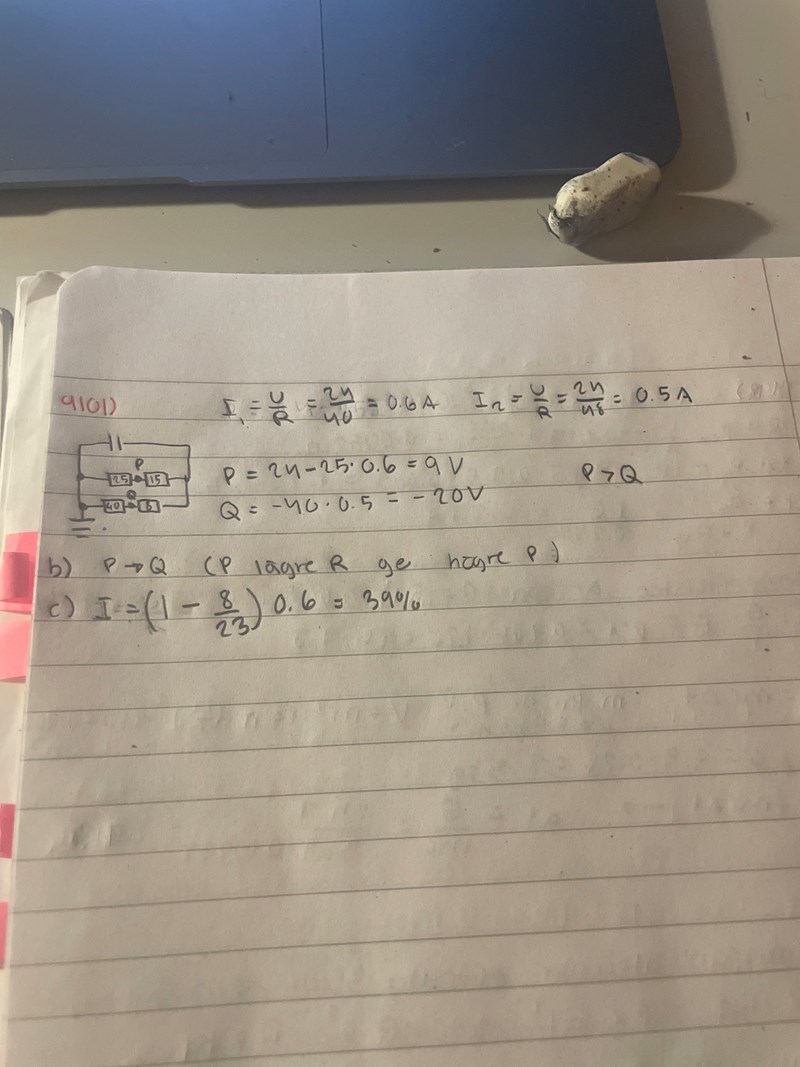 9101)
I₁ = U/R = 24/40 = 0.6 A    I₂ = U/R = 24/48 = 0.5 A
P
25 15
Q
40 8
P = 24-25·0.6 = 9 V    P>Q
Q = -40·0.5 = -20V
b) P→Q (P lägre R ge högre P)
c) I = (1 - 8/23) 0.6 = 39%